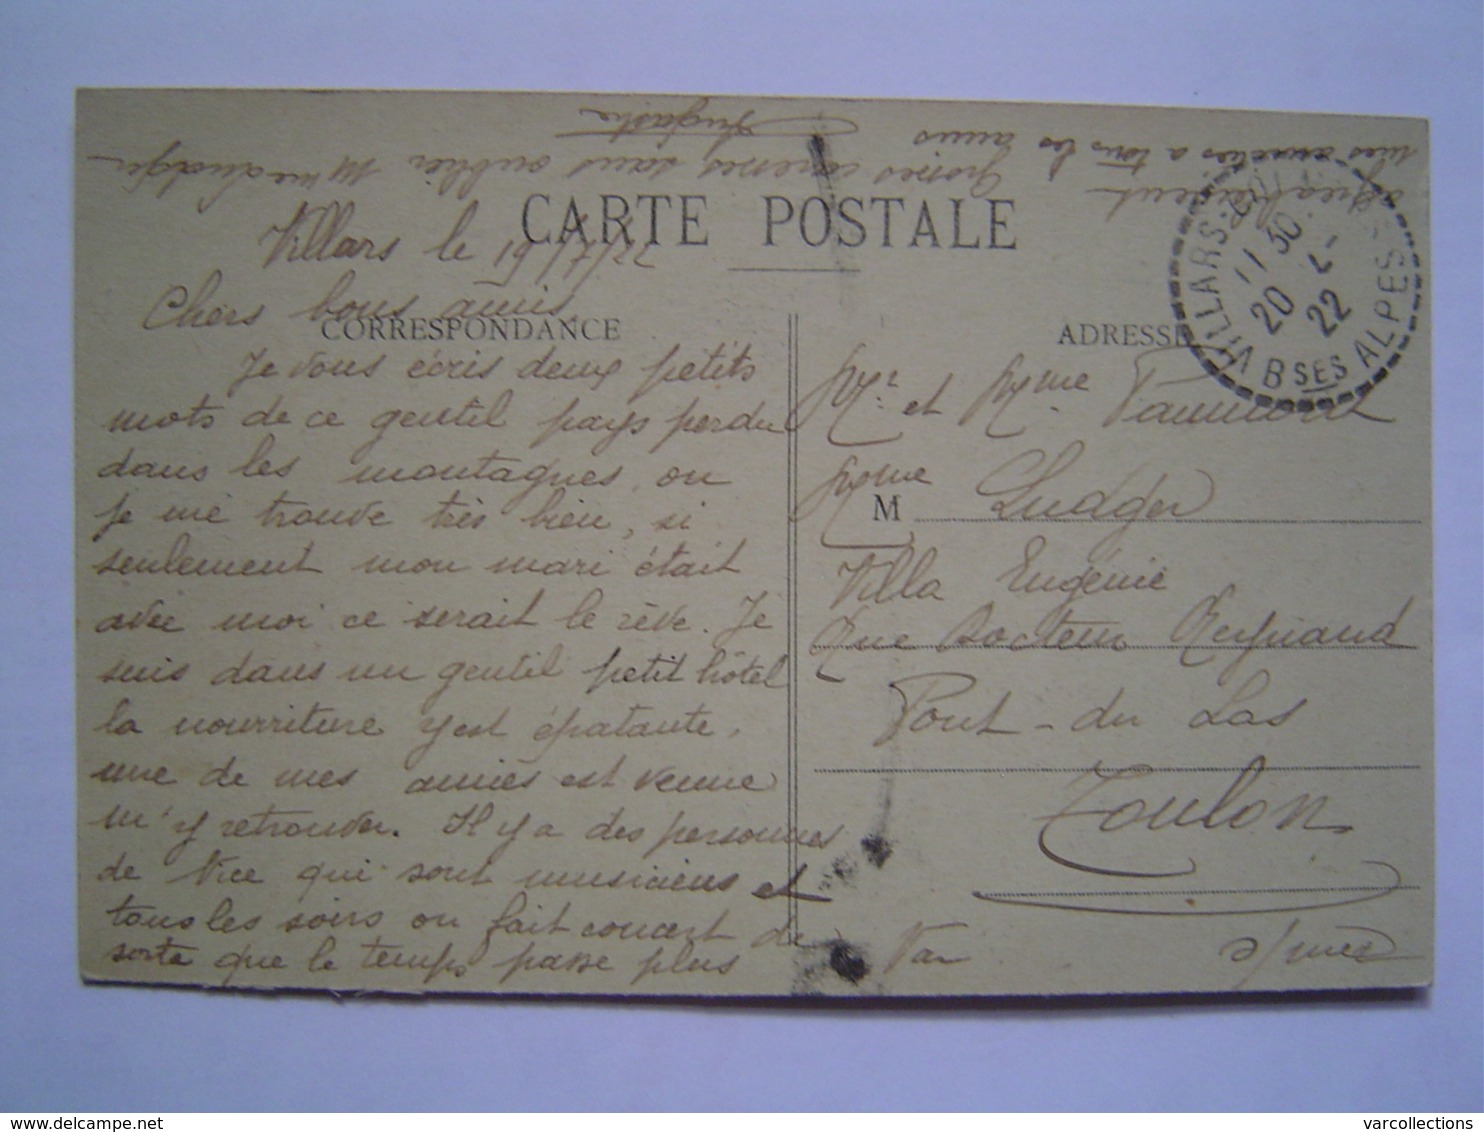 CARTE POSTALE
Villars le 19/7/22
Chers bons amis,
CORRESPONDANCE
Je vous écris deux petits
mots de ce gentil pays perdu
dans les montagnes, ou
je me trouve très bien, si
seulement mon mari était
avec moi ce serait le rêve. Je
suis dans un gentil petit hôtel
la nourriture y est épatante,
une de mes amies est venue
m'y retrouver. Il y a des personnes
de Nice qui sont musiciens et
tous les soirs on fait concert de
sorte que le temps passe plus
agréablement
mes amitiés a tous les amis
Grosses caresses sans oublier Mme Ludger
ADRESSE
VILLARS-COLMARS
11 30
20 - 7
22
BSES ALPES
Mr. et Mme
Mme Ludger
M
Villa Eugénie
Rue Docteur Reynaud
Pont-du Las
Toulon
Var
delcampe.net
varcollections